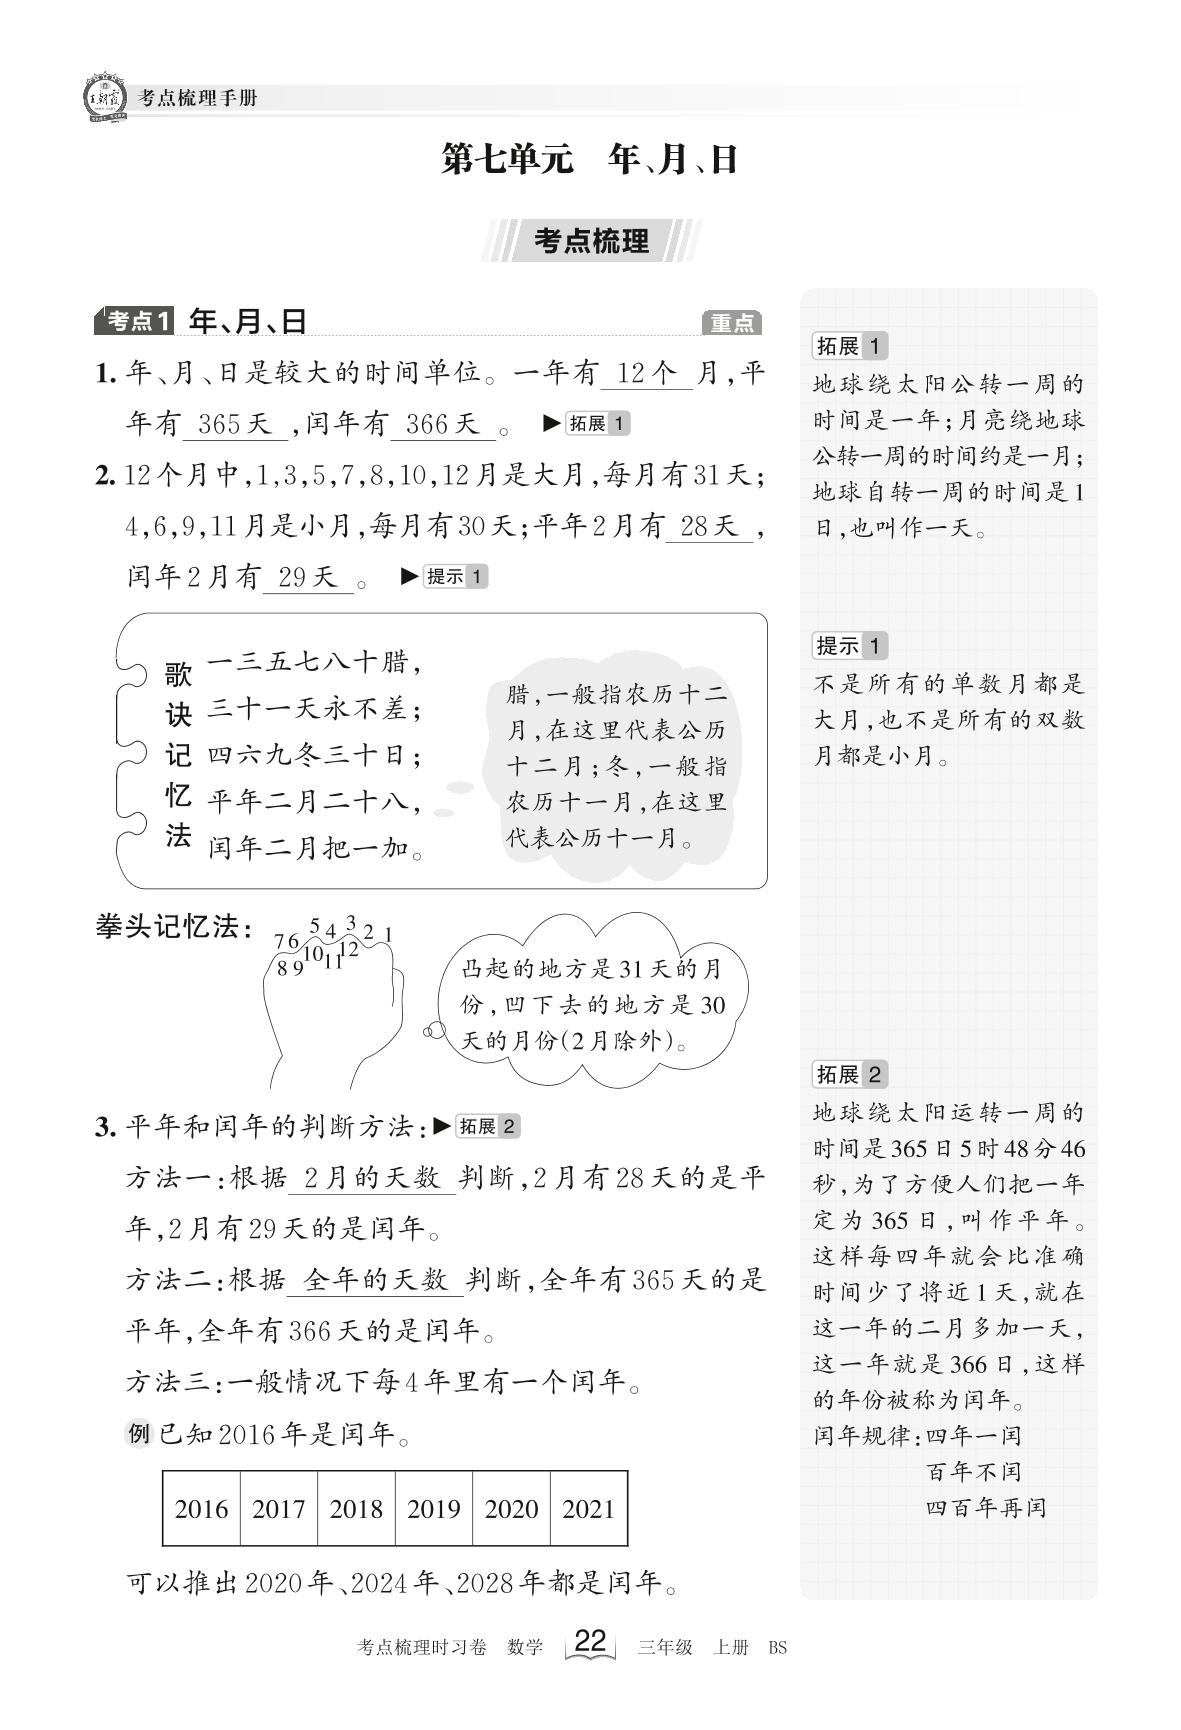 王朝霞
考点梳理手册
第七单元 年、月、日
考点梳理
考点1 年、月、日 重点
1. 年、月、日是较大的时间单位。一年有 12个 月,平
年有 365天 ,闰年有 366天 。 ▶拓展 1
2. 12个月中,1,3,5,7,8,10,12月是大月,每月有31天;
4,6,9,11月是小月,每月有30天;平年2月有 28天 ,
闰年2月有 29天 。 ▶提示 1
歌诀记忆法
一三五七八十腊,
三十一天永不差;
四六九冬三十日;
平年二月二十八,
闰年二月把一加。
腊,一般指农历十二
月,在这里代表公历
十二月;冬,一般指
农历十一月,在这里
代表公历十一月。
拳头记忆法:
7 6 5 4 3 2 1
8 9 10 11 12
凸起的地方是31天的月
份,凹下去的地方是30
天的月份(2月除外)。
3. 平年和闰年的判断方法:▶拓展 2
方法一:根据 2月的天数 判断,2月有28天的是平
年,2月有29天的是闰年。
方法二:根据 全年的天数 判断,全年有365天的是
平年,全年有366天的是闰年。
方法三:一般情况下每4年里有一个闰年。
例 已知2016年是闰年。
2016 2017 2018 2019 2020 2021
可以推出2020年、2024年、2028年都是闰年。
拓展 1
地球绕太阳公转一周的
时间是一年;月亮绕地球
公转一周的时间约是一月;
地球自转一周的时间是1
日,也叫作一天。
提示 1
不是所有的单数月都是
大月,也不是所有的双数
月都是小月。
拓展 2
地球绕太阳运转一周的
时间是365日5时48分46
秒,为了方便人们把一年
定为365日,叫作平年。
这样每四年就会比准确
时间少了将近1天,就在
这一年的二月多加一天,
这一年就是366日,这样
的年份被称为闰年。
闰年规律:四年一闰
百年不闰
四百年再闰
考点梳理时习卷 数学 22 三年级 上册 BS